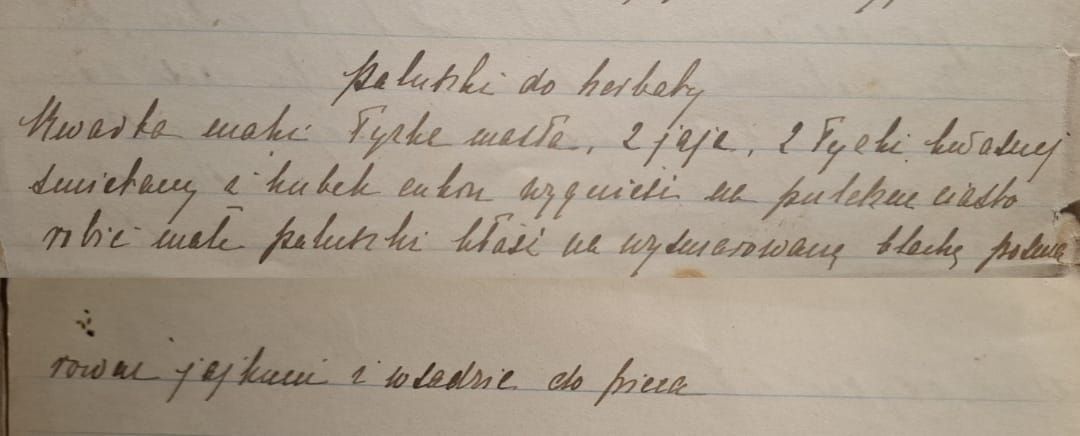 paluszki do herbaty
Kwarta maki łyzke masła, 2 jaja, 2 łyzki kwasnej
smietany i kubek cukru wygnieść na pulchne ciasto
robić małe paluszki kłaść na wysmarowaną blachę posma
rowac jajkami i wsadzic do pieca